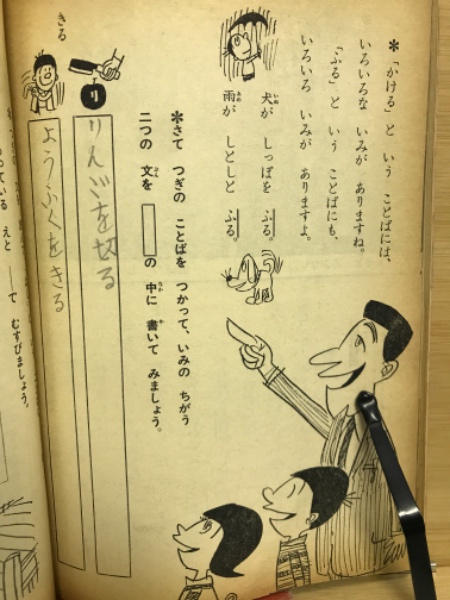 *「かける」と いう ことばには、
いろいろな いみが ありますね。
「ふる」と いう ことばにも、
いろいろ いみが ありますよ。
犬が しっぽを ふる。
雨が しとしと ふる。
*さて つぎの ことばを つかって、いみの ちがう
二つの 文を の 中に 書いて みましょう。
きる
りんごを切る
ようふくをきる
いる えと ——で むすびましょう。